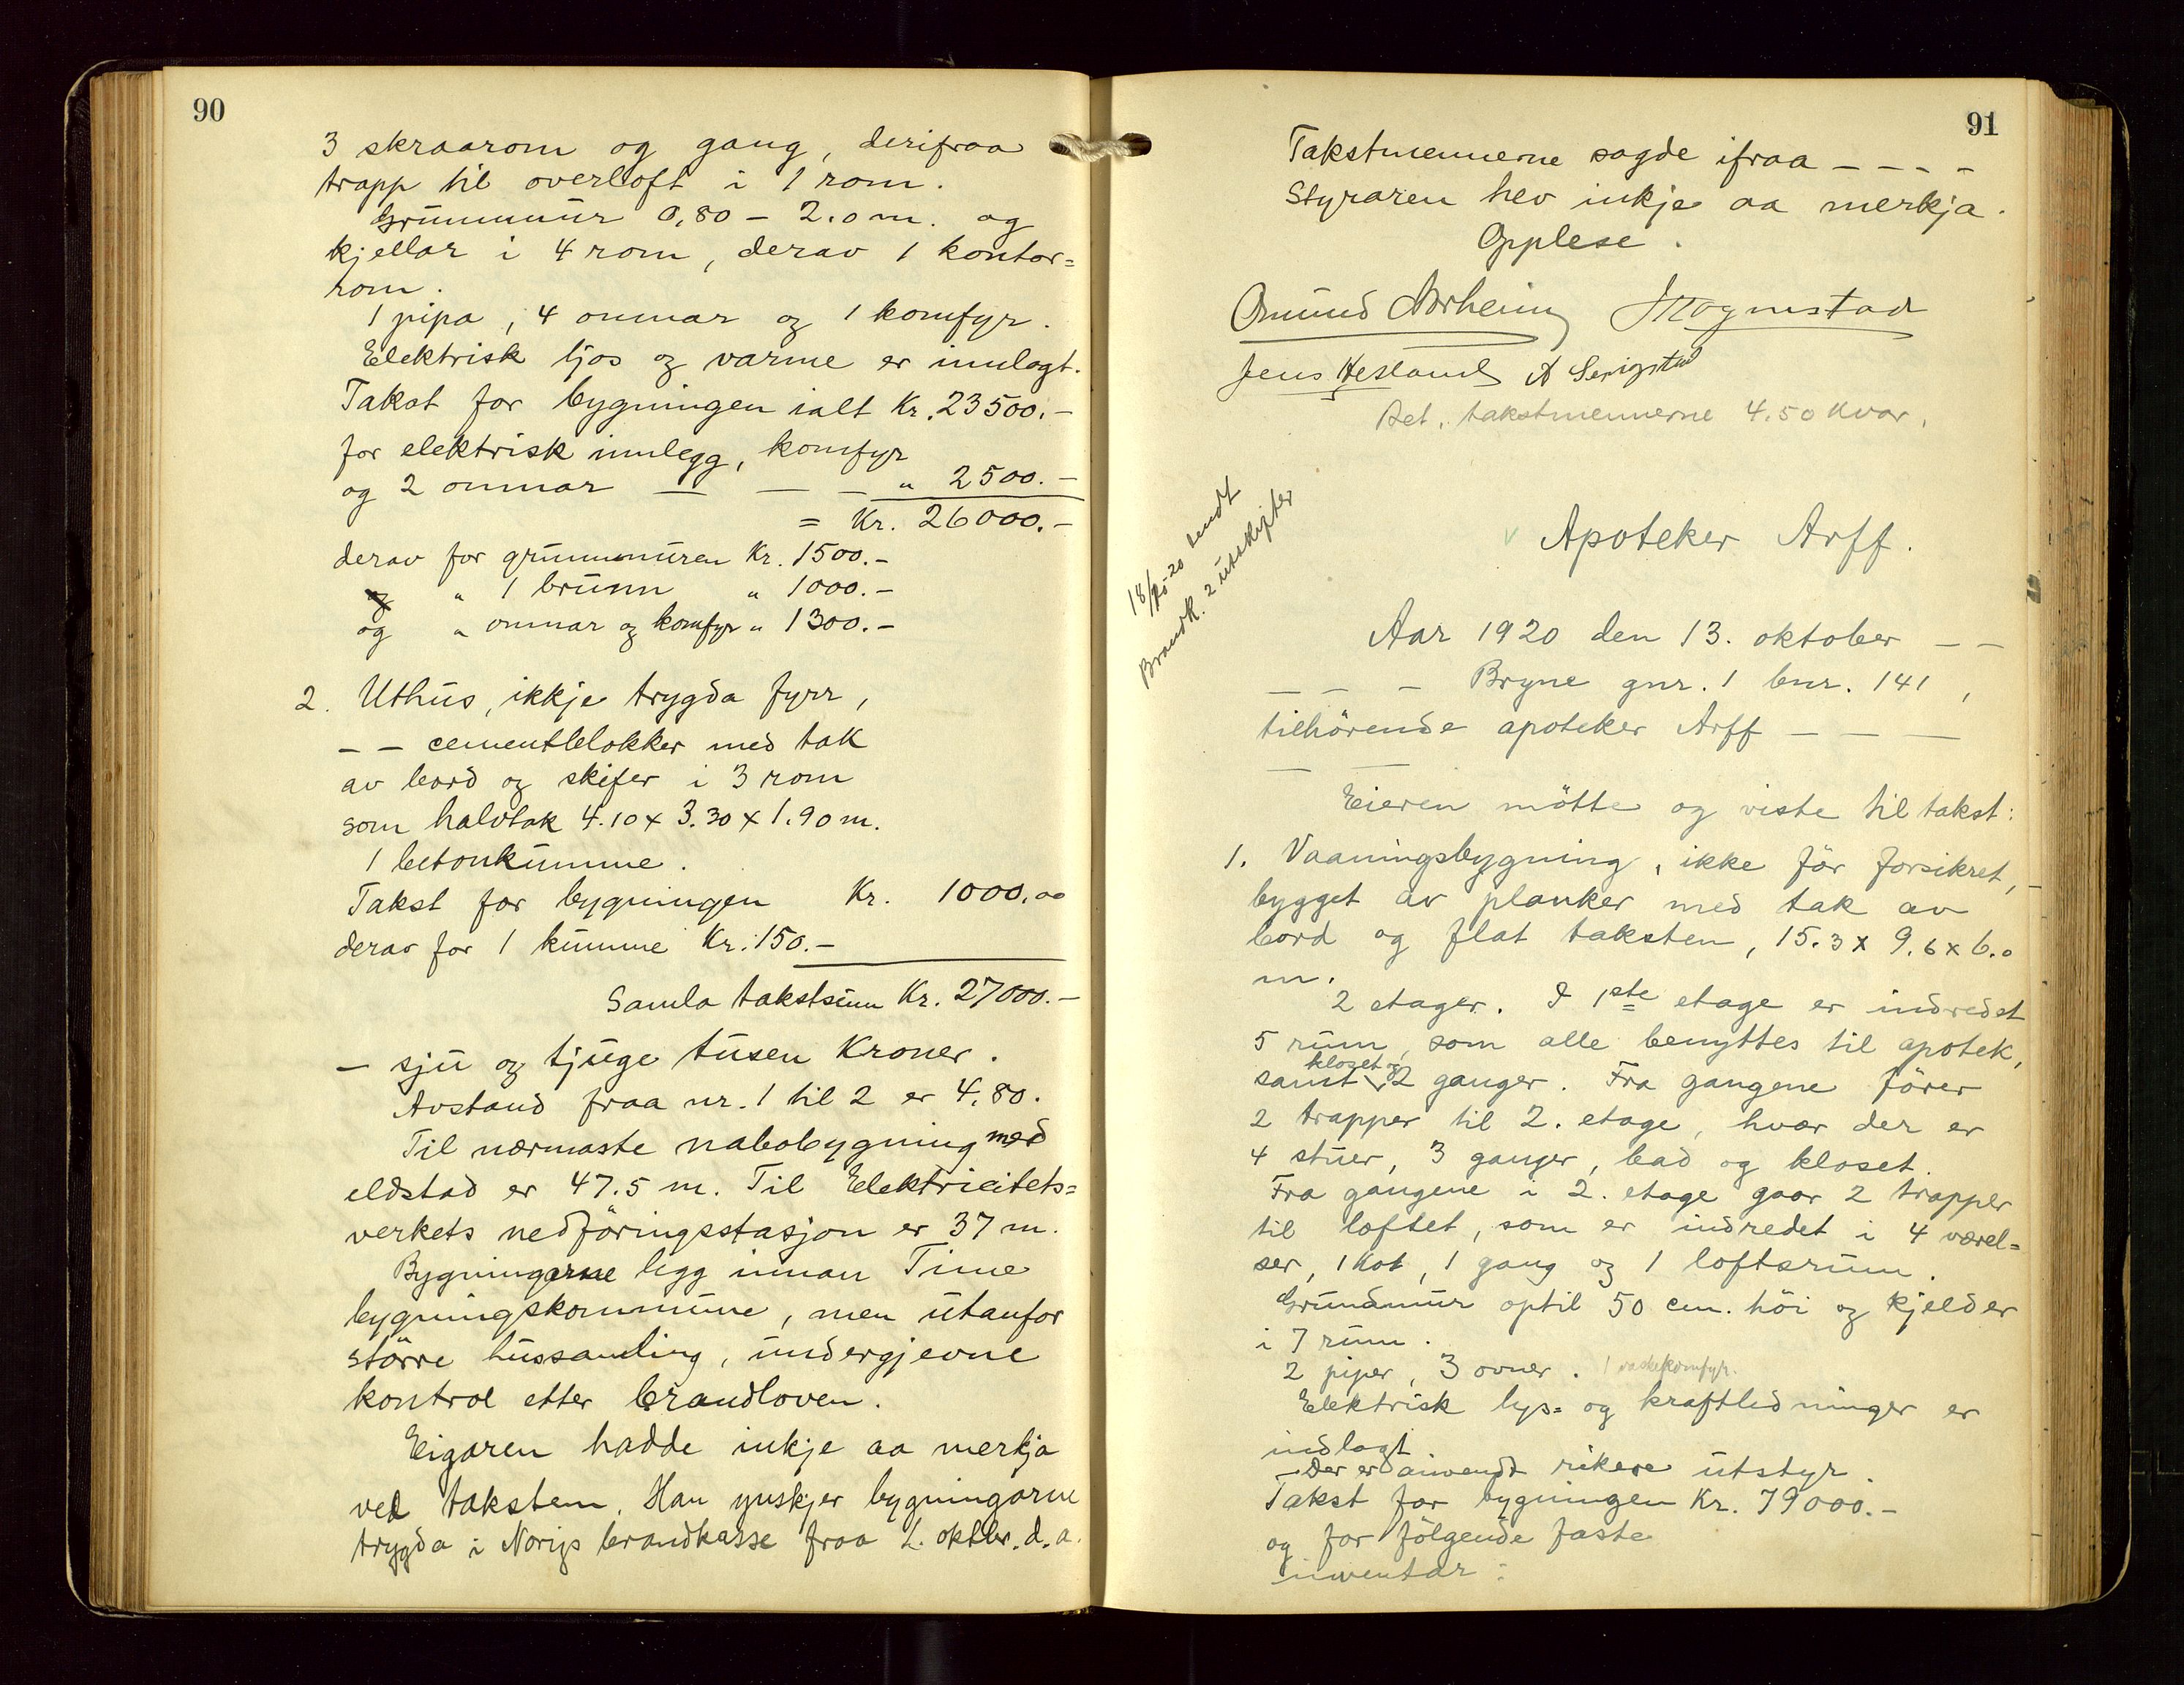 90
3 skraarom og gang, derifraa
trapp til overloft i 1 rom.
Grunnmur 0,80 - 2.0 m. og
kjellar i 4 rom, derav 1 kontor=
rom.
1 pipa, 4 omnar og 1 komfyr.
Elektrisk ljos og varme er innlagt.
Takst for bygningen ialt Kr. 23500.-
for elektrisk innlegg, komfyr
og 2 omnar — — — " 2500.-
= Kr. 26000.-
derav for grunnmuren Kr. 1500.-
" 1 brunn " 1000.-
og " omnar og komfyr " 1300.-
2. Uthus, ikkje trygda fyrr,
- - cementblokker med tak
av bord og skifer i 3 rom
som halvtak 4.10 x 3.30 x 1.90 m.
1 betonkumme.
Takst for bygningen Kr. 1000.00
derav for 1 kumme Kr. 150.-
Samla takstsum Kr. 27000.-
- sju og tjuge tusen Kroner.
Avstand fraa nr. 1 til 2 er 4.80.
Til nærmaste nabobygning med
eldstad er 47.5 m. Til Elektricitets=
verkets nedföringsstasjon er 37 m.
Bygningarne ligg innan Time
bygningskommune, men utanfor
större hussamling, undergjevne
kontrol etter brandloven.
Eigaren hadde inkje aa merkja
ved taksten. Han ynskjer bygningarne
trygda i Norigs brandkasse fraa 1. oktbr. d.a.
91
Takstmennerne sagde ifraa - - - -
Styraren hev inkje aa merkja.
Opplese.
Omund Norheim Mognstad
Jens Hesland A Serigstad
Bet. takstmennerne 4.50 kvar.
18/10-20 sendt
Brandk. 2 utskrifter
v Apoteker Arff.
Aar 1920 den 13. oktober - -
- - - Bryne gnr. 1 bnr. 141,
tilhörende apoteker Arff - - -
Eieren mötte og viste til takst:
1. Vaaningsbygning, ikke för forsikret, -
bygget av planker med tak av
bord og flat taksten, 15.3 x 9.6 x 6.0
m.
2 etager. I 1ste etage er indredet
5 rum, som alle benyttes til apotek,
samt kloset og 2 ganger. Fra gangene förer
2 trapper til 2. etage, hvor der er
4 stuer, 3 ganger, bad og kloset.
Fra gangene i 2. etage gaar 2 trapper
til loftet, som er indredet i 4 værel=
ser, 1 kot, 1 gang og 1 loftsrum.
Grundmur optil 50 cm. höi og kjelder
i 7 rum.
2 piper, 3 ovner. 1 vaskekomfyr.
Elektrisk lys= og kraftledninger er
indlagt.
- Der er anvendt rikere utstyr.
Takst for bygningen Kr. 79000.-
og for fölgende faste
inventar: